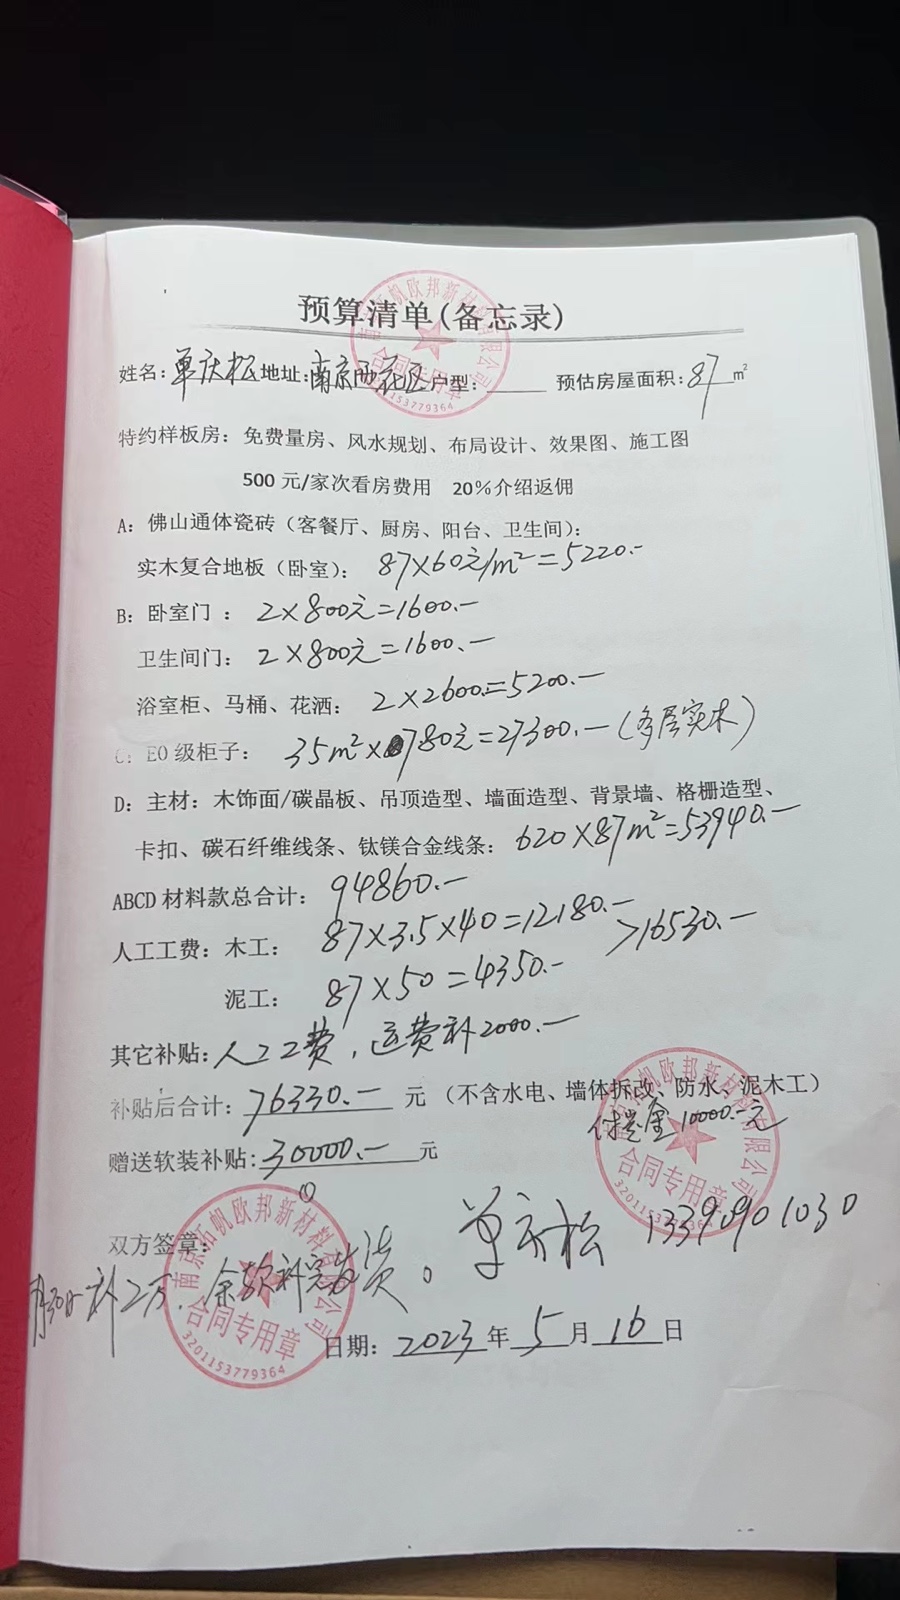 预算清单(备忘录)
姓名:单庆松地址:南京雨花区户型: 预估房屋面积:87m²
特约样板房：免费量房、风水规划、布局设计、效果图、施工图
500 元/家次看房费用 20%介绍返佣
A：佛山通体瓷砖（客餐厅、厨房、阳台、卫生间）：
实木复合地板（卧室）： 87×60元/m²=5220.-
B：卧室门 ： 2×800元=1600.-
卫生间门： 2×800元=1600.-
浴室柜、马桶、花洒： 2×2600.=5200.-
C：E0 级柜子： 35m²×780元=27300.-(多层实木)
D：主材：木饰面/碳晶板、吊顶造型、墙面造型、背景墙、格栅造型、
卡扣、碳石纤维线条、钛镁合金线条：620×87m²=53940.-
ABCD 材料款总合计： 94860.-
人工工费：木工： 87×3.5×40=12180.- >16530.-
泥工： 87×50=4350.-
其它补贴:人工工费，运费补2000.-
补贴后合计：76330.- 元（不含水电、墙体拆改、防水、泥木工）
付定金10000.-元
赠送软装补贴:30000.-元
双方签章： 单庆松 13390901030
补二万，余款补完发货。
日期：2023年5月16日
南京拓帆欧邦新材料有限公司
合同专用章
3201153779364
南京拓帆欧邦新材料有限公司
合同专用章
3201153779364
南京拓帆欧邦新材料有限公司
合同专用章
3201153779364